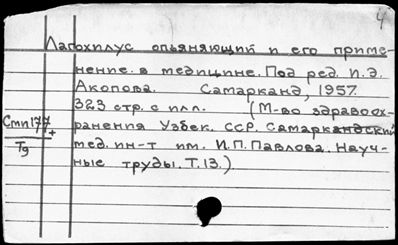 4
Лагохилус опьяняющий и его приме-
нение в медицине. Под ред. И.Э.
Акопова. Самарканд, 1957.
323 стр. с илл. (М-во здравоох-
Смп177 ранения Узбек. ССР. Самаркандский
Т9 мед. ин-т им. И.П. Павлова. Науч-
ные труды. Т.13.)